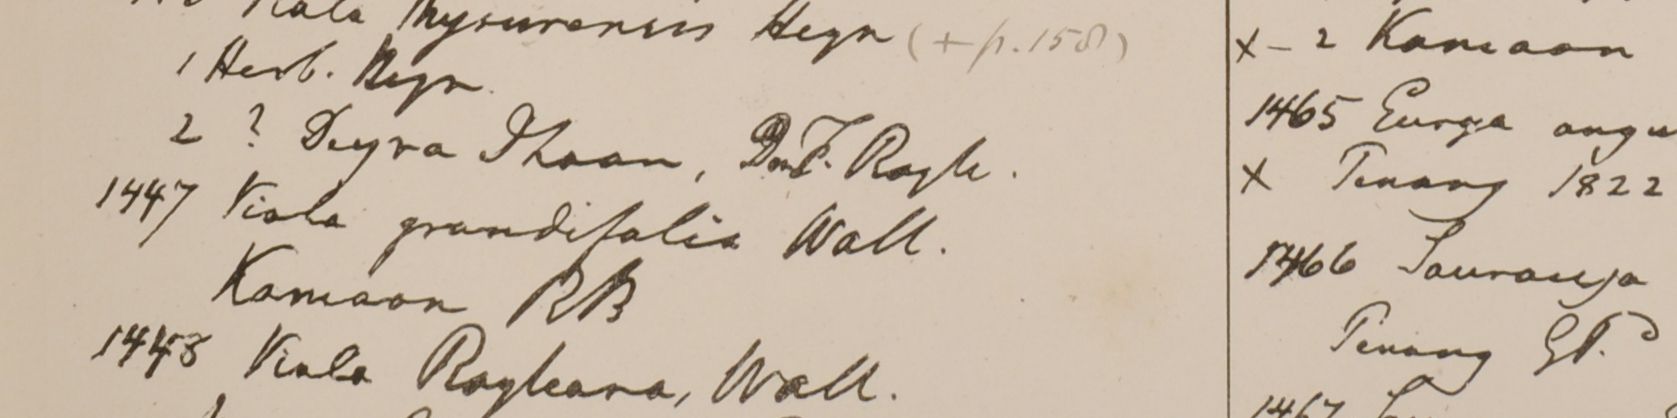 Viola Mysurensis Heyn (+ p. 158)
1 Herb. Heyn.
2 ? Deyra Dhoon, Dr. F. Royle.
1447 Viola grandifolia Wall.
Kamaon RB
1448 Viola Royleana, Wall.
x - 2 Kamaon
1465 Eurya angu
x Penang 1822
1466 Saurauja
Penang GP.
1467